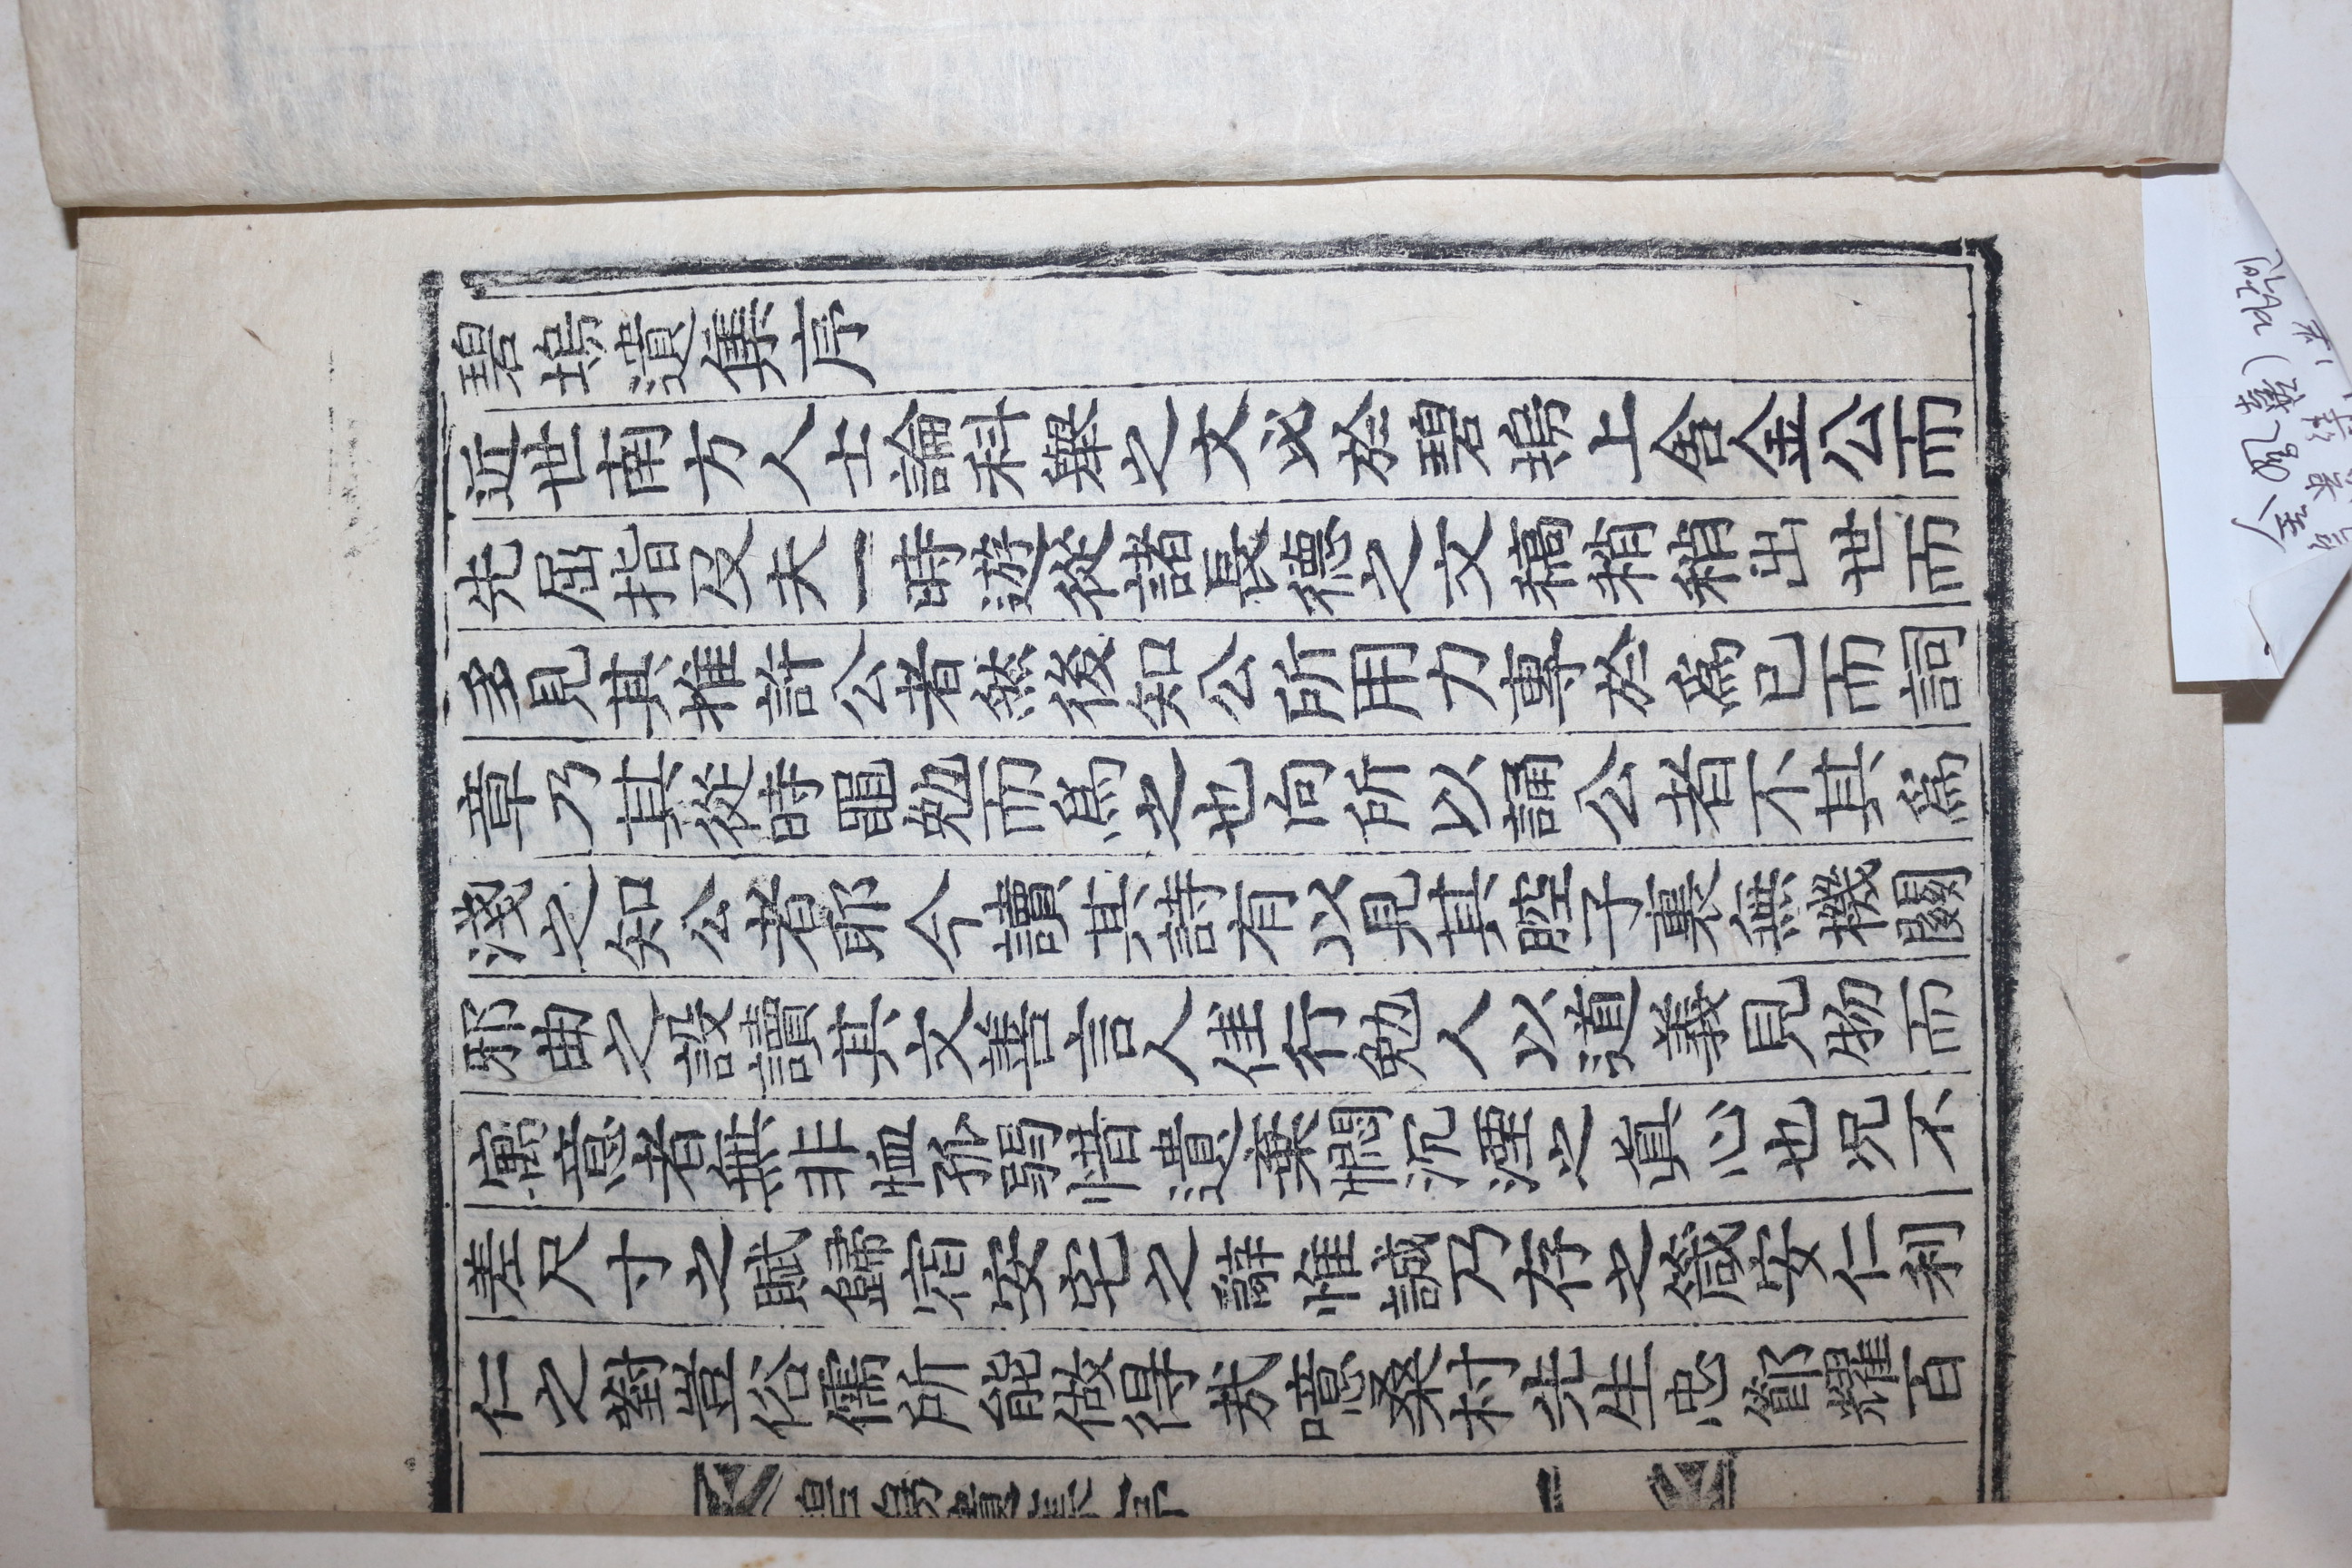 碧塢遺集序
近世南方人士論科舉之文必於碧塢上舍金公而
先屈指及夫一時遊從諸長德之文稿稍稍出世而
多見其推許公者然後知公所用力專於爲已而詞
章乃其從時黽勉而爲之也向所以誦公者不其爲
淺之知公者耶今讀其詩有以見其腔子裏無機關
邪曲之設讀其文善言人佳行勉人以道義見物而
寓意者無非恤孤弱惜遺棄憫沉湮之眞心也况不
差尺寸之賦歸宿安宅之辭惟誠乃存之箴安仁利
仁之對豈俗儒所能做得哉噫桑村先生忠節耀百
碧塢遺集序
一
金鳳喜)